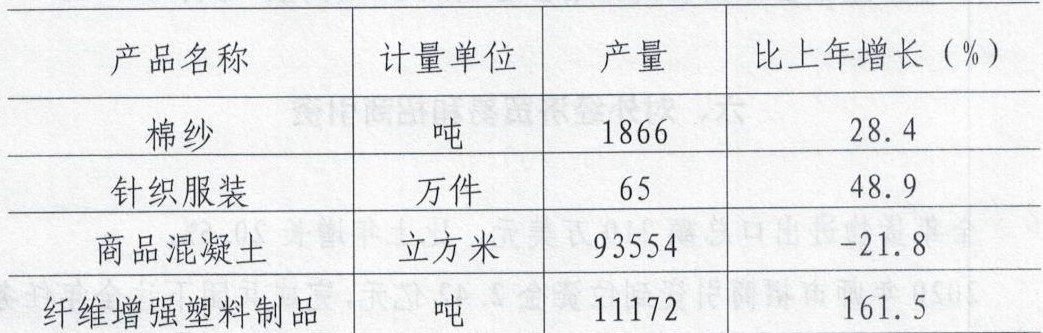 产品名称 计量单位 产量 比上年增长（%）
棉纱 吨 1866 28.4
针织服装 万件 65 48.9
商品混凝土 立方米 93554 -21.8
纤维增强塑料制品 吨 11172 161.5